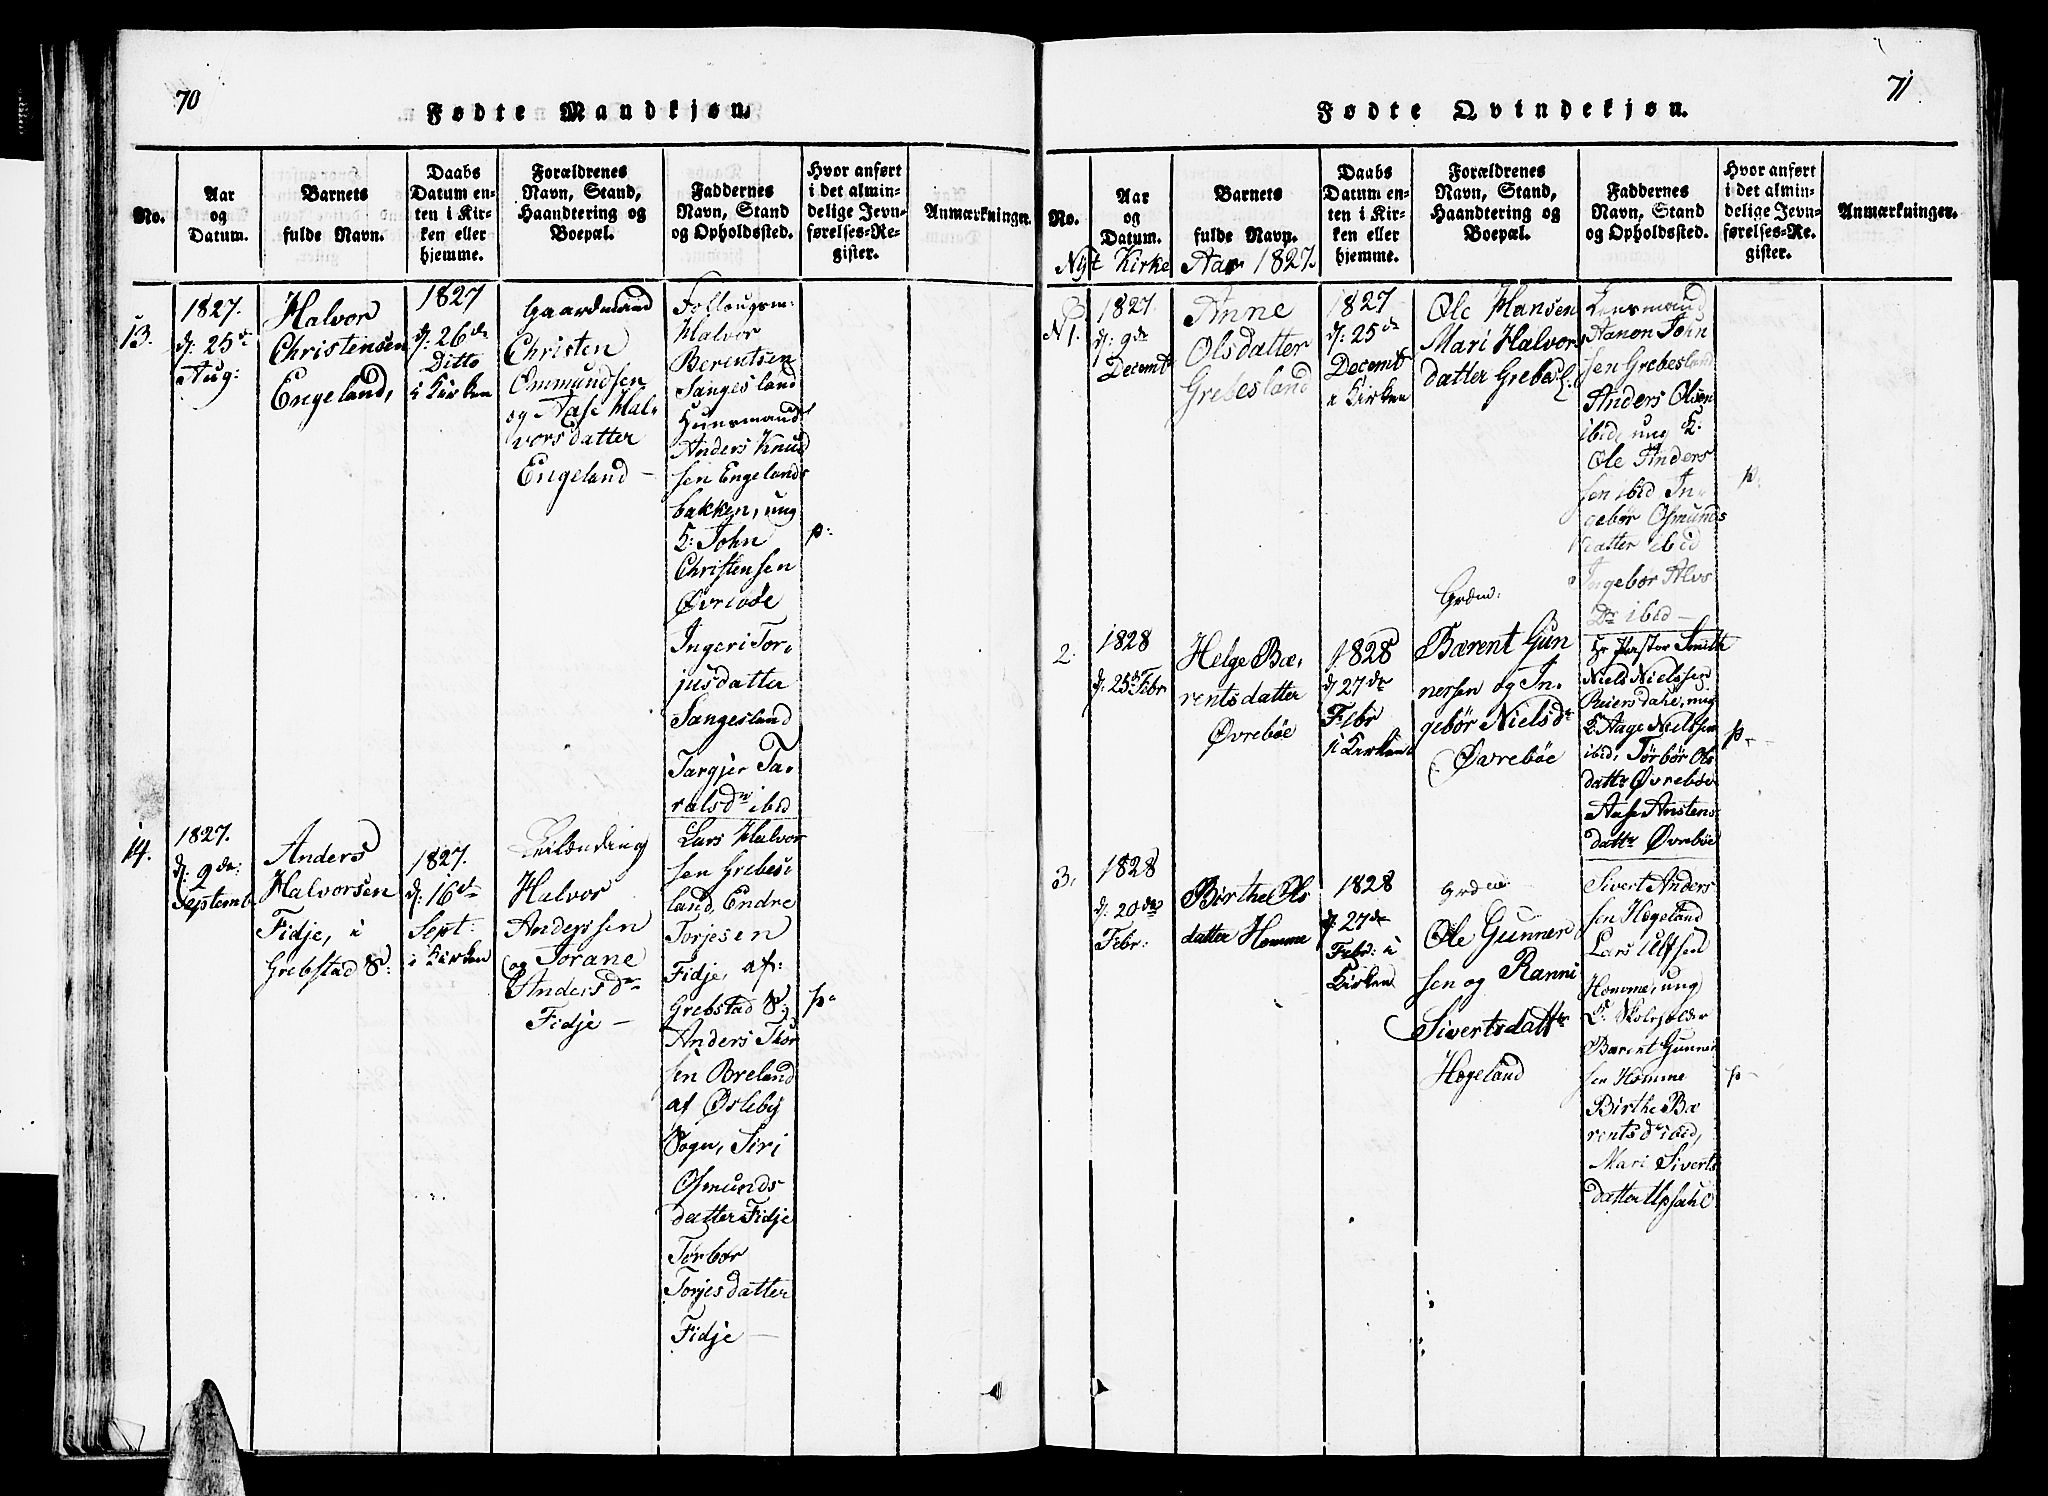 70
Fødte Mandkjøn.
No.
Aar
og
Datum.
Barnets
fulde Navn.
Daabs
Datum en-
ten i Kir-
ken eller
hjemme.
Forældrenes
Navn, Stand,
Haandtering og
Boepæl.
Faddernes
Navn, Stand
og Opholdssted.
Hvor anført
i det almin-
delige Jevn-
førelses-Re-
gister.
Anmærkninger.
13.
1827.
d: 25de
Aug:
Halvor
Christensen
Engeland,
1827
d: 26de
Ditto
i Kirken
Gaardmand
Christen
Ommundsen
og Aase Hal-
vorsdatter
Engeland —
Halvor
Berentsen
Sangesland
Huusmand
Anders Knud
sen Engelands
bakken, ung
K: John
Christensen
Øvrebøe
Ingeri Tor-
jusdatter
Sangesland
Targjer Ta-
ralsdr ibid
p:
14.
1827.
d: 9de
Septemb
Anders
Halvorsen
Fidje, i
Grebstad S:
1827.
d: 16de
Sept:
i Kirken
Halvor
Anderssen
og Torane
Andersdr
Fidje —
Lars Halvor
sen Grebes-
land, Endre
Torjesen
Fidje, af
Grebstad S:
Anders Thor
sen Breland
af Øsleby
Sogn, Siri
Osmunds
datter Fidje
Torbor
Torjesdatter
Fidje —
p:
71
Fødte Qvindekjøn.
No.
Aar
og
Datum.
Barnets
fulde Navn.
Daabs
Datum en-
ten i Kir-
ken eller
hjemme.
Forældrenes
Navn, Stand,
Haandtering og
Boepæl.
Faddernes
Navn, Stand
og Opholdssted.
Hvor anført
i det almin-
delige Jevn-
førelses-Re-
gister.
Anmærkninger.
Nyt Kirke Aar 1827.
N1.
1827
d: 9de
Decembr
Anne
Olsdatter
Grebesland
1827
d: 25de
Decembr
i Kirken
Ole Hansen
Mari Halvors
datter Grebesl.
Lensmand
Aanon John
sen Grebesland
Anders Olsen
ibid, ung K:
Ole Anders
sen ibid In-
gebør Osmunds
datter ibid
Ingebor Alvs
Dr ibid —
p.
2.
1828
d: 25de Febr
Helge Bæ-
rentsdatter
Øvrebøe
1828
d 27de
Febr
i Kirken
Grdm:
Bærent Gun
nersen og In-
gebør Nielsdr
Øvrebøe
Hr Pastor Smith
Niels Nielssen
Reiersdahl, ung
K Aage Nielssen
ibid, Torbør Ols
dattr Øvrebøe
Aase Anstens
dattr Øvrebøe
p—
3.
1828
d: 20de
Febr:
Birthe Ols
datter Homme
1828
d: 27de
Febr: i
Kirken
Ole Gunner
sen og Ranni
Sivertsdattr
Hægeland
Sivert Anders
sen Hægeland
Lars Ulfsen
Homme, ung
K: Skoleholder
Bærent Gunner
sen Homme
Birthe Bæ
rentsdr ibid,
Mari Siverts
datter Upsahl
p—